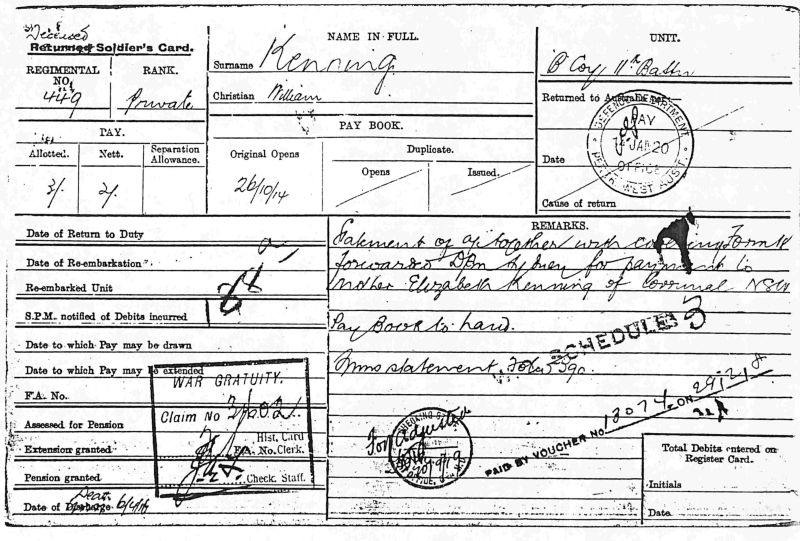 Deceased
Returned Soldier's Card.
REGIMENTAL NO.
449
RANK.
Private
NAME IN FULL.
Surname Kenning
Christian William
UNIT.
B Coy 11th Battn
Returned to Australia per
Date
Cause of return
DEFENCE DEPARTMENT
PAY
14 JAN 20
OFFICE
PERTH WEST AUST.
PAY.
Allotted.
Nett.
Separation Allowance.
3/.
2/.
PAY BOOK.
Original Opens
26/10/14
Duplicate.
Opens
Issued.
Date of Return to Duty
Date of Re-embarkation
Re-embarked Unit
S.P.M. notified of Debits incurred
Date to which Pay may be drawn
Date to which Pay may be extended
F.A. No.
Assessed for Pension
Extension granted
Pension granted
Date of Discharge
Death
6/4/18
WAR GRATUITY.
Claim No
Hist. Card
F.A. No. Clerk.
Check. Staff.
REMARKS.
Statement of a/c together with covering Form
forwarded DPM Sydney for payment to
mother Elizabeth Kenning of Corrimal NSW
Pay Book to hand.
SCHEDULE 3
statement
PAID BY VOUCHER No 13074 ON
For adjusted
20/9/19
Total Debits entered on Register Card.
Initials
Date